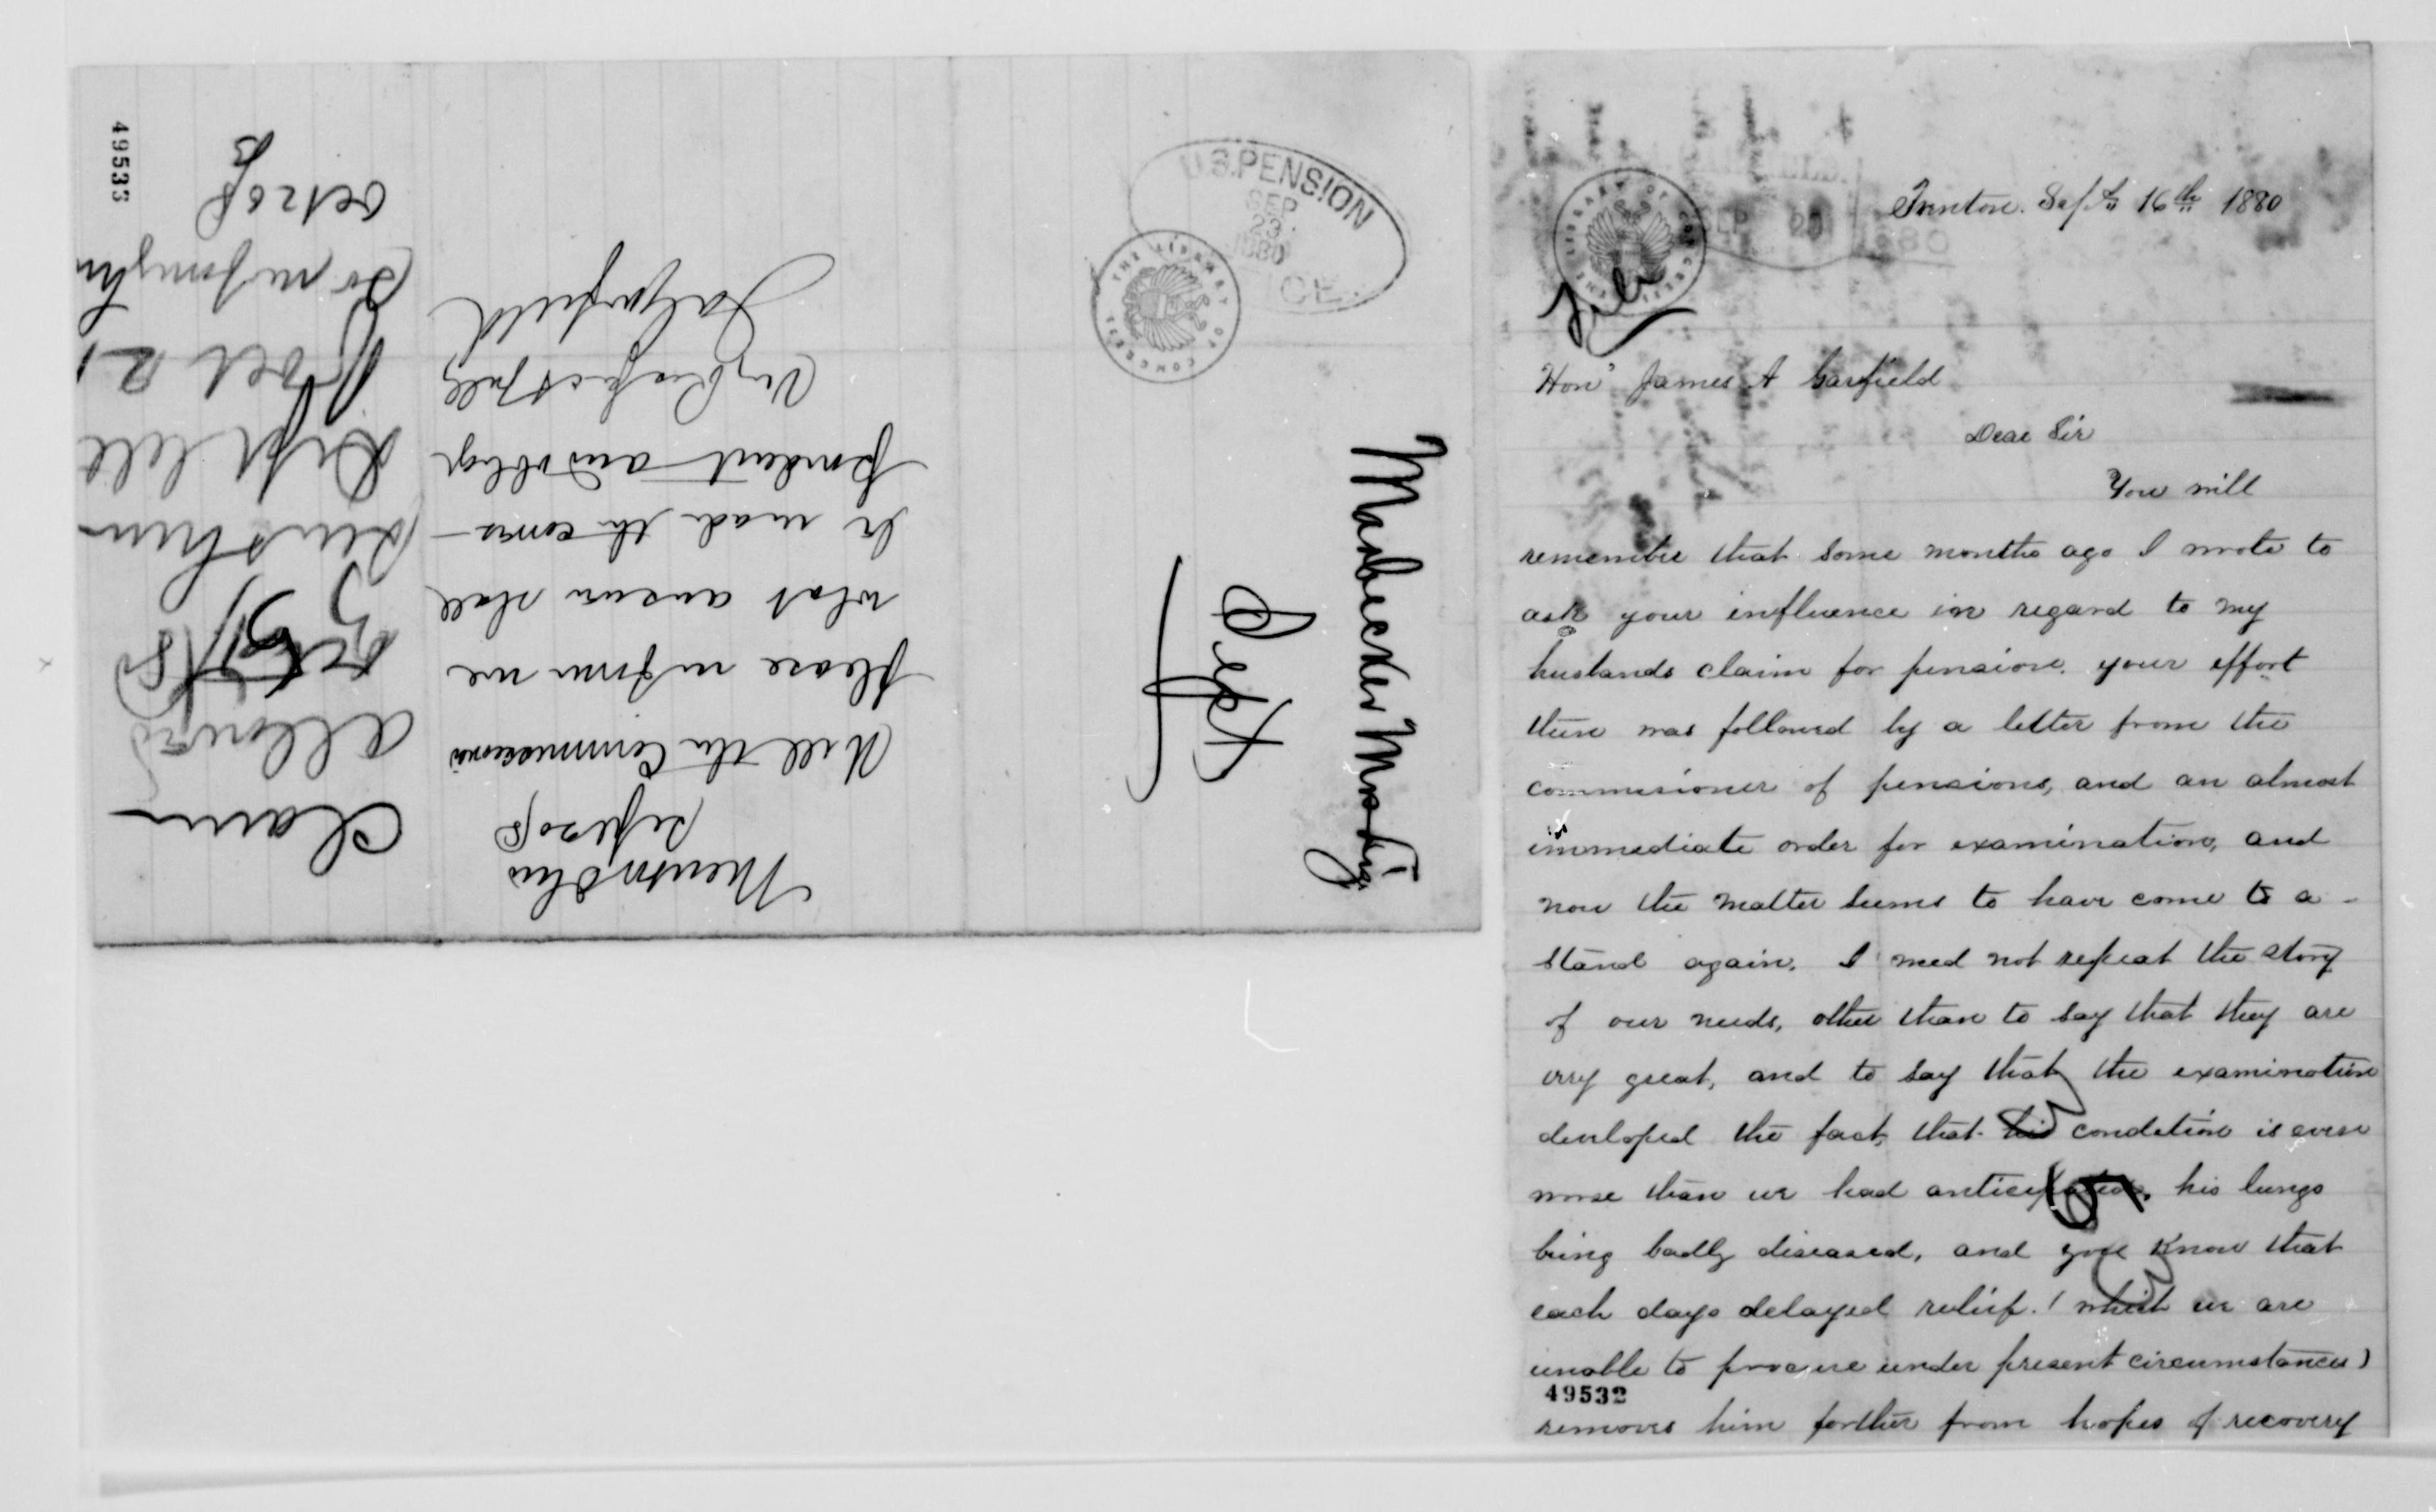 49533
Mentor Ohio
Sept 20/80
Will the Commissioner
please inform me
what answer shall
be made the corres-
pondent and oblige
Very Respectfully
J A Garfield
Claim
allowed
Oct
Oct 21
so inform
Oct 20/80
U.S. PENSION
SEP
23
1880
OFFICE
THE LIBRARY OF CONGRESS
Manbecker Mrs
Sept
Trenton. Sept 16th 1880
LIBRARY OF CONGRESS
SEP 20 1880
File
Hon' James A Garfield
Dear Sir
You will
remember that some months ago I wrote to
ask your influence in regard to my
husbands claim for pension. your effort
then was followed by a letter from the
commisioner of pensions, and an almost
immediate order for examination, and
now the matter seems to have come to a -
stand again. I need not repeat the story
of our needs, other than to say that they are
very great, and to say that the examination
developed the fact, that his condition is even
worse than we had anticipated, his lungs
being badly diseased, and you know that
each days delayed relief. (which we are
unable to procure under present circumstances)
49532
removes him farther from hopes of recovery